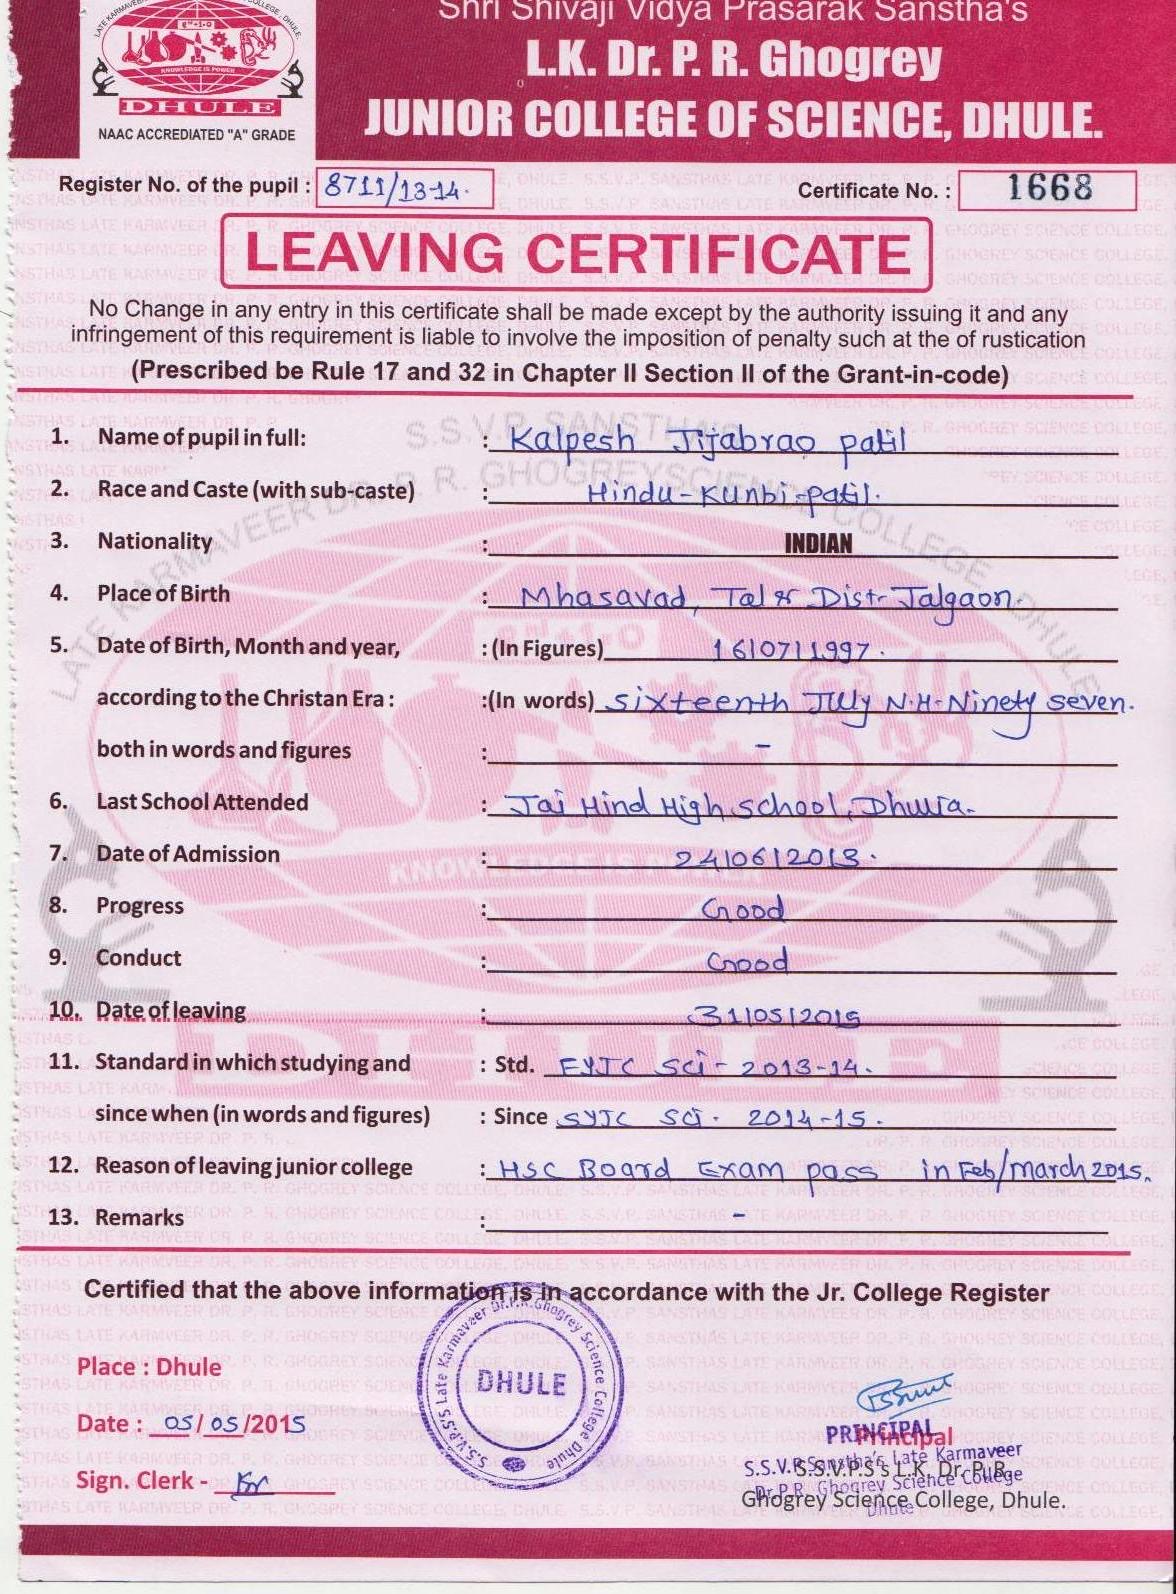 Shri Shivaji Vidya Prasarak Sanstha's
L.K. Dr. P. R. Ghogrey
JUNIOR COLLEGE OF SCIENCE, DHULE.
KNOWLEDGE IS POWER
DHULE
NAAC ACCREDIATED "A" GRADE
Register No. of the pupil : 8711/13-14.
Certificate No. : 1668
LEAVING CERTIFICATE
No Change in any entry in this certificate shall be made except by the authority issuing it and any
infringement of this requirement is liable to involve the imposition of penalty such at the of rustication
(Prescribed be Rule 17 and 32 in Chapter II Section II of the Grant-in-code)
1. Name of pupil in full: : Kalpesh Jijabrao patil
2. Race and Caste (with sub-caste) : Hindu-Kunbi-patil.
3. Nationality : INDIAN
4. Place of Birth : Mhasavad, Tal & Dist- Jalgaon.
5. Date of Birth, Month and year, : (In Figures) 16/07/1997.
according to the Christan Era : :(In words) Sixteenth July N.H-Ninety seven.
both in words and figures : -
6. Last School Attended : Jai Hind High school, Dhule.
7. Date of Admission : 24/06/2013.
8. Progress : Good
9. Conduct : Good
10. Date of leaving : 31/05/2015
11. Standard in which studying and : Std. FYJC Sci - 2013-14.
since when (in words and figures) : Since SYJC Sci. 2014-15.
12. Reason of leaving junior college : HSC Board Exam pass in Feb/March 2015.
13. Remarks : -
Certified that the above information is in accordance with the Jr. College Register
S.S.V.P.S'S Late Karmaveer Dr.P.R.Ghogrey Science College Dhule
DHULE
Place : Dhule
Date : 05/05/2015
Sign. Clerk -
PRINCIPAL
Principal
S.S.V.P.Sanstha's Late Karmaveer
S.S.V.P.S's L.K. Dr. P. R.
Dr.P.R. Ghogrey Science College
Ghogrey Science College, Dhule.
Dhule